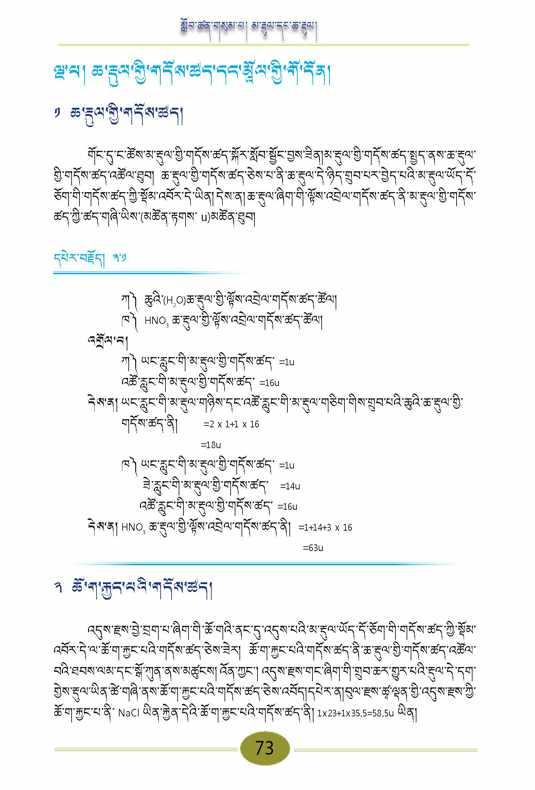 སློབ་ཚན་གསུམ་པ། མ་རྡུལ་དང་ཆ་རྡུལ།
ལྔ་པ། ཆ་རྡུལ་གྱི་གདོས་ཚད་དང་མཱོལ་གྱི་གོ་དོན།
༡ ཆ་རྡུལ་གྱི་གདོས་ཚད།
གོང་དུ་ང་ཚོས་མ་རྡུལ་གྱི་གདོས་ཚད་སྐོར་སློབ་སྦྱོང་བྱས་ཟིན།མ་རྡུལ་གྱི་གདོས་ཚད་སྤྱད་ནས་ཆ་རྡུལ་
གྱི་གདོས་ཚད་འཚོལ་ཐུབ། ཆ་རྡུལ་གྱི་གདོས་ཚད་ཅེས་པ་ནི་ཆ་རྡུལ་དེ་ཉིད་གྲུབ་པར་བྱེད་པའི་མ་རྡུལ་ཡོད་དོ་
ཅོག་གི་གདོས་ཚད་ཀྱི་སྡོམ་འབོར་དེ་ཡིན། དེས་ན། ཆ་རྡུལ་ཞིག་གི་ལྟོས་འབྲེལ་གདོས་ཚད་ནི་མ་རྡུལ་གྱི་གདོས་
ཚད་ཀྱི་ཚད་གཞི་ཡིས་(མཚོན་རྟགས་ u)མཚོན་ཐུབ།
དཔེར་བརྗོད། ༣.༡
ཀ༽ ཆུའི་(H₂O)ཆ་རྡུལ་གྱི་ལྟོས་འབྲེལ་གདོས་ཚད་ཚོལ།
ཁ༽ HNO₃ ཆ་རྡུལ་གྱི་ལྟོས་འབྲེལ་གདོས་ཚད་ཚོལ།
འགྲོལ་བ།
ཀ༽ ཡང་རླུང་གི་མ་རྡུལ་གྱི་གདོས་ཚད་ =1u
འཚོ་རླུང་གི་མ་རྡུལ་གྱི་གདོས་ཚད་ =16u
དེས་ན། ཡང་རླུང་གི་མ་རྡུལ་གཉིས་དང་འཚོ་རླུང་གི་མ་རྡུལ་གཅིག་གིས་གྲུབ་པའི་ཆུའི་ཆ་རྡུལ་གྱི་
གདོས་ཚད་ནི། =2 x 1+1 x 16
=18u
ཁ༽ ཡང་རླུང་གི་མ་རྡུལ་གྱི་གདོས་ཚད་ =1u
ཟེ་རླུང་གི་མ་རྡུལ་གྱི་གདོས་ཚད་ =14u
འཚོ་རླུང་གི་མ་རྡུལ་གྱི་གདོས་ཚད་ =16u
དེས་ན། HNO₃ ཆ་རྡུལ་གྱི་ལྟོས་འབྲེལ་གདོས་ཚད་ནི། =1+14+3 x 16
=63u
༢ ཚོ་ག་རྐྱང་པའི་གདོས་ཚད།
འདུས་རྫས་བྱེ་བྲག་པ་ཞིག་གི་ཚོ་གའི་ནང་དུ་འདུས་པའི་མ་རྡུལ་ཡོད་དོ་ཅོག་གི་གདོས་ཚད་ཀྱི་སྡོམ་
འབོར་དེ་ལ་ཚོ་ག་རྐྱང་པའི་གདོས་ཚད་ཅེས་ཟེར། ཚོ་ག་རྐྱང་པའི་གདོས་ཚད་ནི་ཆ་རྡུལ་གྱི་གདོས་ཚད་འཚོལ་
བའི་ཐབས་ལམ་དང་སྒོ་ཀུན་ནས་མཚུངས། འོན་ཀྱང་། འདུས་རྫས་གང་ཞིག་གི་གྲུབ་ཆར་གྱུར་པའི་རྡུལ་དེ་དག་
གྱེས་རྡུལ་ཡིན་ཚེ་གཞི་ནས་ཚོ་ག་རྐྱང་པའི་གདོས་ཚད་ཅེས་འབོད།དཔེར་ན།བུལ་རྫས་ཚྭ་ལྡན་གྱི་འདུས་རྫས་ཀྱི་
ཚོ་ག་རྐྱང་པ་ནི་ NaCl ཡིན་རྐྱེན་དེའི་ཚོ་ག་རྐྱང་པའི་གདོས་ཚད་ནི། 1x23+1x35.5=58.5u ཡིན།
73